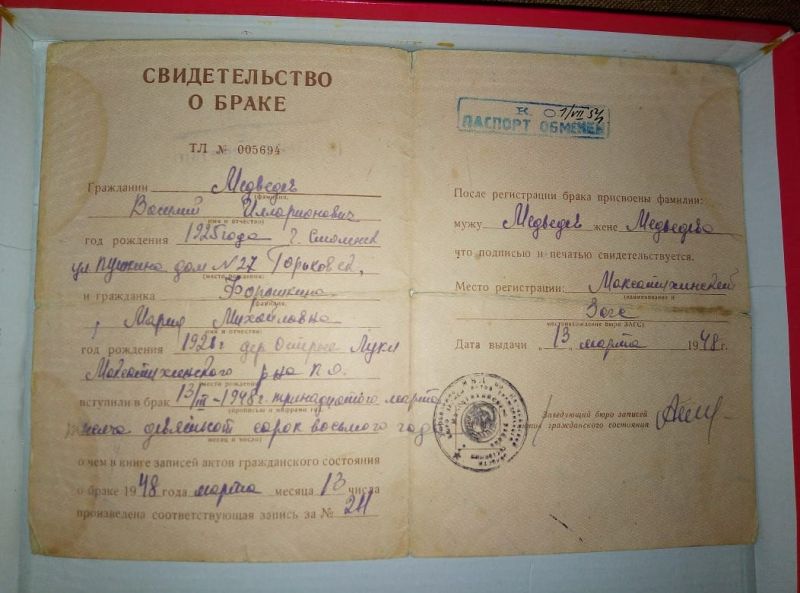 СВИДЕТЕЛЬСТВО
О БРАКЕ
ТЛ № 005694
Гражданин Медведев
(фамилия,
Василий Илларионович
имя и отчество)
год рождения 1925 года г. Смоленск
ул Пушкина дом №27 Горьковск,
(место рождения)
и гражданка
фамилия,
Мария Михайловна
имя и отчество)
год рождения 1928 г дер Острые Луки
Максатихинского р на
место рождения)
вступили в брак 13/III-1948 г. тринадцатого марта
(прописью и цифрами год,
тысяча девятсот сорок восьмого года
месяц и число)
о чем в книге записей актов гражданского состояния
о браке 1948 года марта месяца 13 числа
произведена соответствующая запись за № 211
К. 1/VII 54
ПАСПОРТ ОБМЕНЕН
После регистрации брака присвоены фамилии:
мужу Медведев жене Медведева
что подписью и печатью свидетельствуется.
Место регистрации: Максатихинский
(наименование и
Загс
местонахождение бюро ЗАГС)
Дата выдачи „13" марта 1948 г.
Заведующий бюро записей
актов гражданского состояния